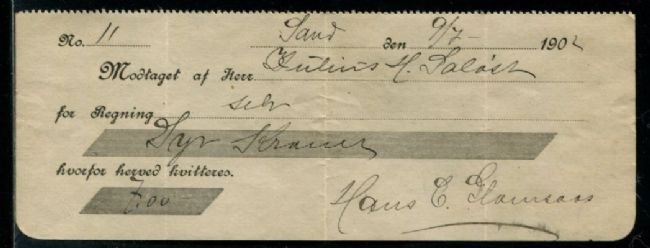 No. 11 Sand den 9/7 - 1902
Modtaget af Herr Julius H.
for Regning selv
Syv Kroner
hvorfor herved kvitteres.
7.00 Hans C.